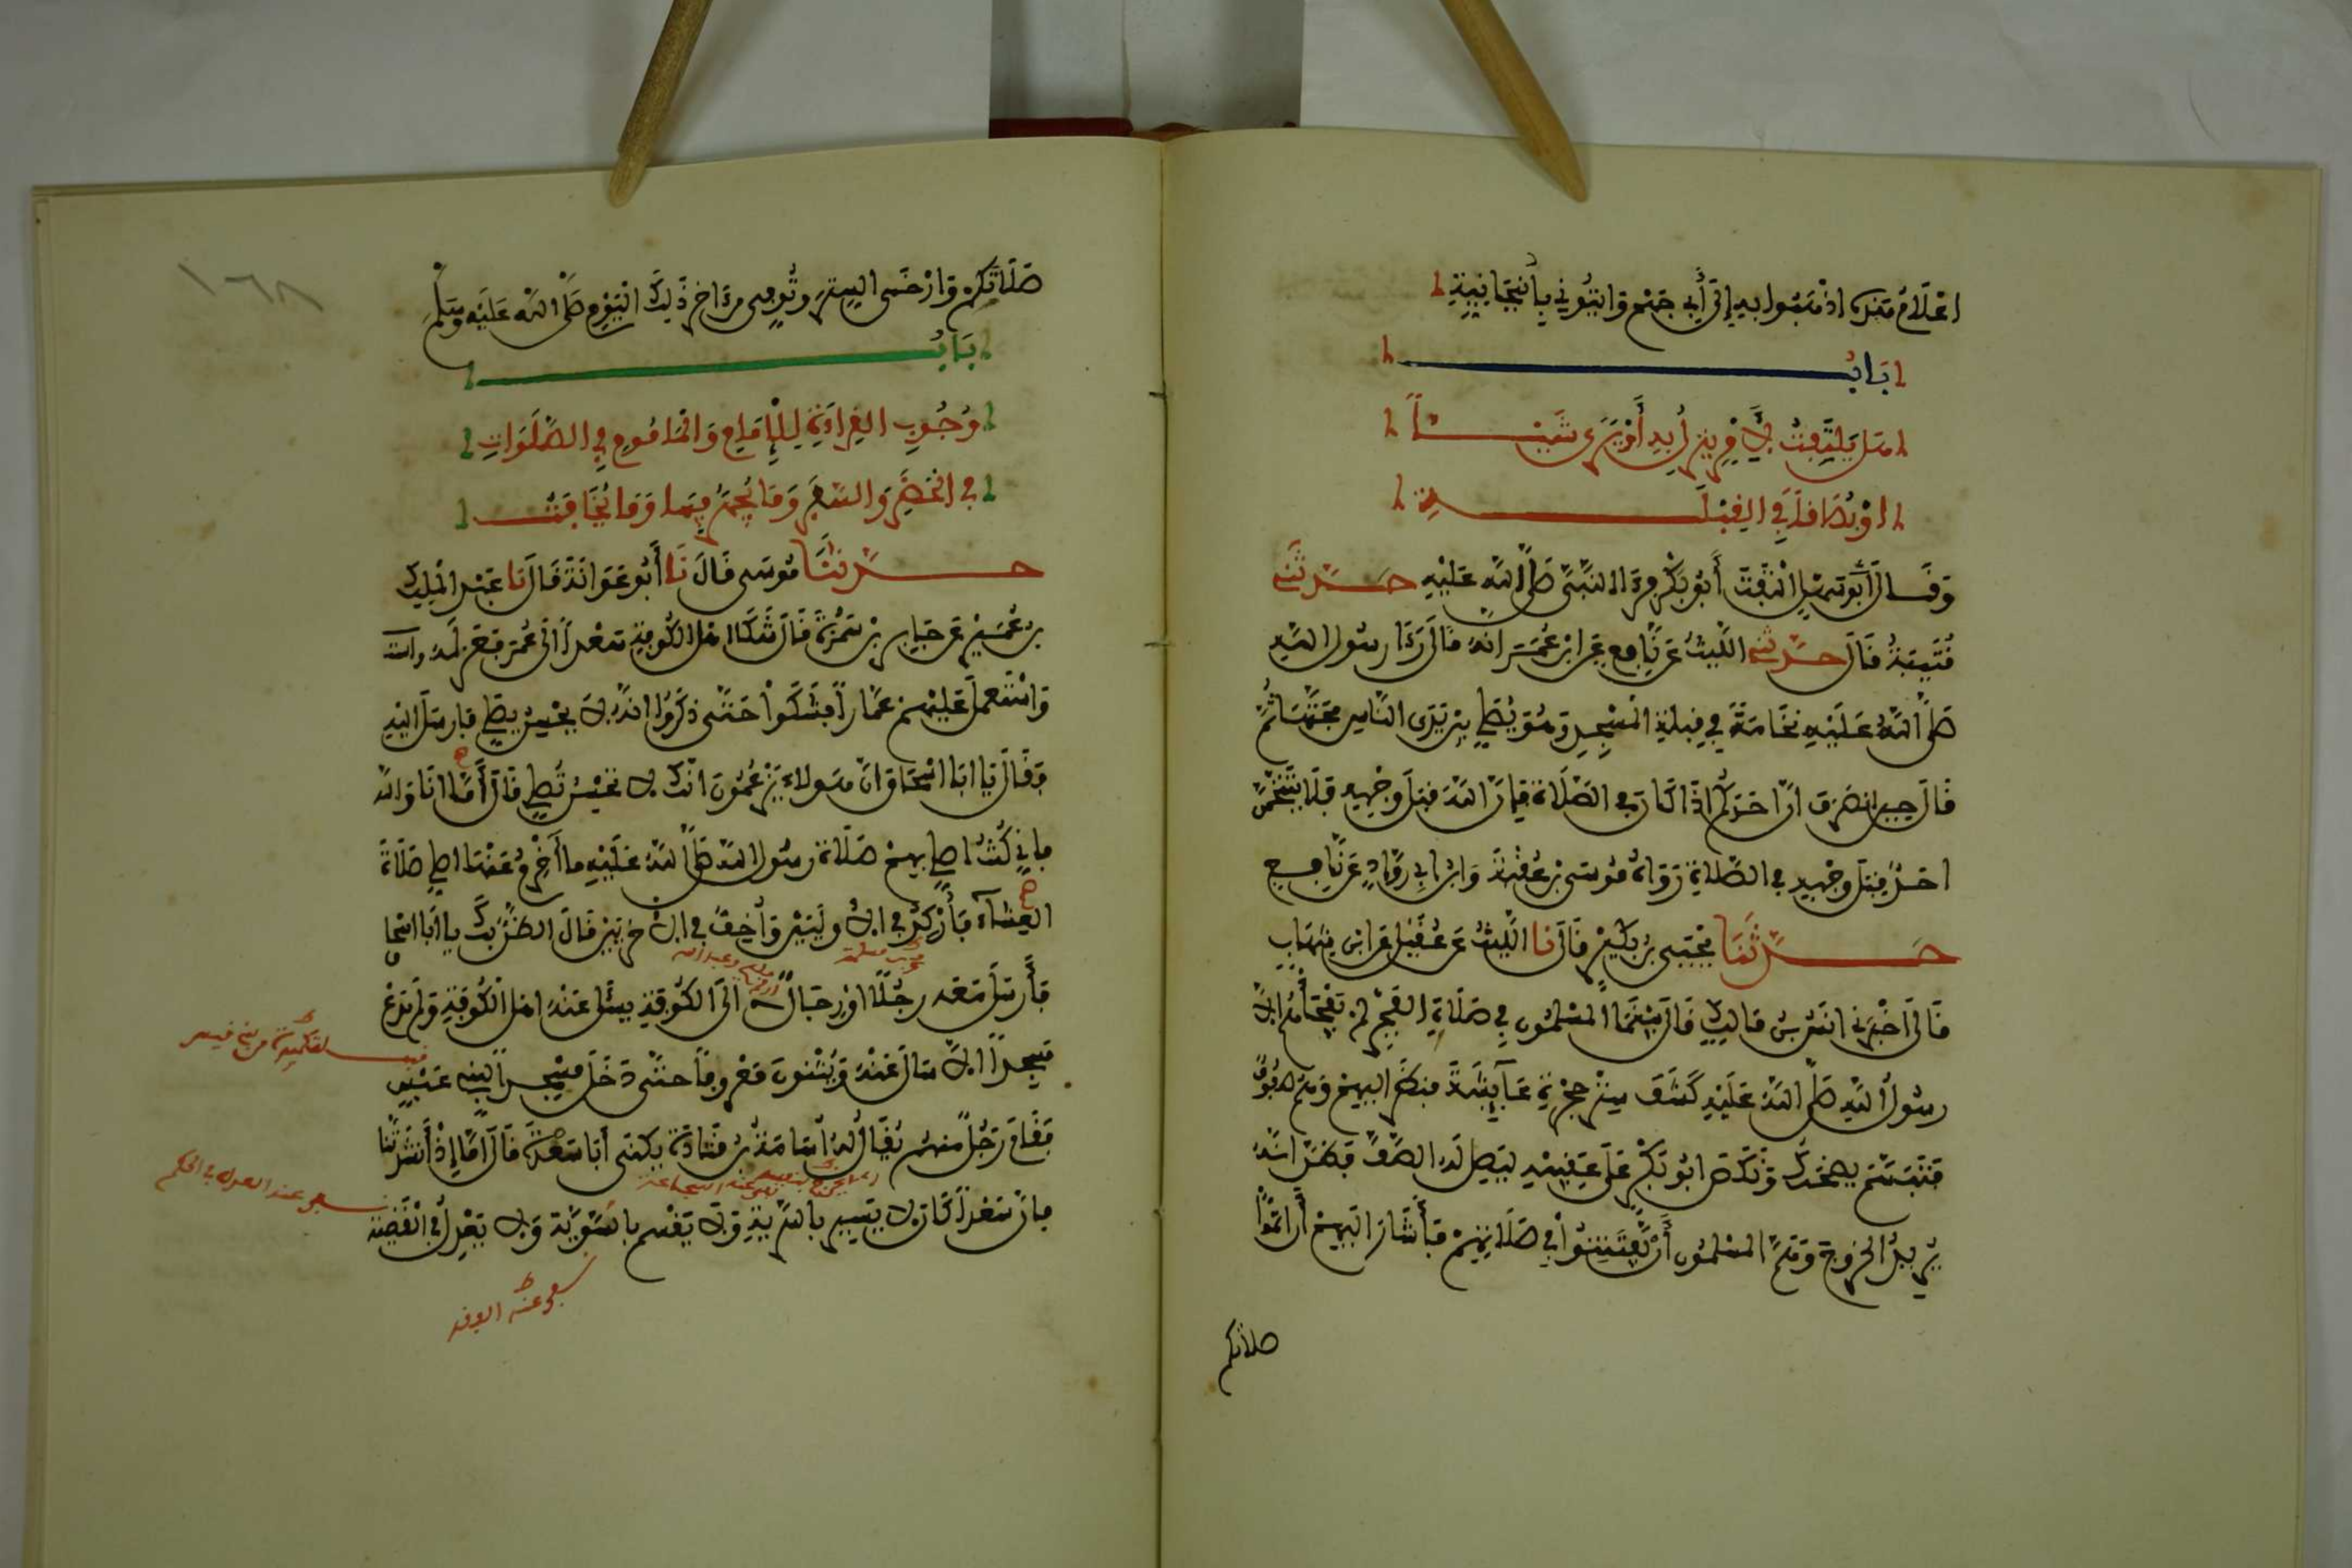 اعْلَامُ هَذِهِ اذْهَبُوا بِهِ إِلَى أَبِي جَهْمٍ وَاتُونِي بِأَنْبِجَانِيَّةِ
بَابُ
هَل يَلْتَفِتُ لِأَمْرٍ يَنْزِلُ بِهِ أَوْ يَرَى شَيْـئـاً
اوْ بُصَاقاً فِي الْقِبْلَـةِ
وَقَالَ أَبُو سَهْلٍ الْتَفَتَ أَبُو بَكْرٍ فَرَءَا النَّبِيَّ صَلَّى اللهُ عَلَيْهِ حَدَّثَنِي
قُتَيْبَةُ قَالَ حَدَّثَنِي اللَّيْثُ عَن نَّافِعٍ عَنِ ابْنِ عُمَرَ انَّهُ قَالَ رَءَا رسُولُ اللهِ
صَلَّى اللهُ عَلَيْهِ نُخَامَةً فِي قِبْلَةِ الْمَسْجِدِ وَهُوَ يُصَلِّي بَيْنَ يَدَىِ النَّاسِ فَحَتَّهَا ثُمَّ
قَالَ حِينَ انْصَرَفَ انَّ احَدَكُمُ اذَا كَانَ فِي الصَّلَاةِ فَإِنَّ اللهَ قِبَلَ وَجْهِهِ فَلَا يَتَنَخَّمَنَّ
احَدٌ قِبَلَ وَجْهِهِ فِي الصَّلَاةِ رَوَاهُ مُوسَى بْنُ عُقْبَةَ وَابْنُ ابِي رَوَّادٍ عَن نَّافِعٍ
حَـدَّثَنَا يَحْيَى بْنُ بُكَيْرٍ قَالَ نا اللَّيْثُ عَنْ عُقَيْلٍ عَنِ ابْنِ شِهَابٍ
قَالَ أَخْبَرَنِي انَسُ بْنُ مَالِكٍ قَالَ بَيْنَمَا الْمُسْلِمُونَ فِي صَلَاةِ الْفَجْرِ لَمْ يَفْجَأْهُمُ الَّا
رسُولُ اللهِ صَلَّى اللهُ عَلَيْهِ كَشَفَ سِتْرَ حُجْرَةِ عَائِشَةَ فَنَظَرَ الَيْهِمْ وَهُمْ صُفُوفٌ
فَتَبَسَّمَ يَضْحَكُ وَنَكَصَ ابُو بَكْرٍ عَلَى عَقِبَيْهِ لِيَصِلَ لَهُ الصَّفَّ فَظَنَّ انَّهُ
يُرِيدُ الْخُرُوجَ وَهَمَّ الْمُسْلِمُونَ أَنْ يَّفْتَتِنُواْ فِي صَلَاتِهِمْ فَأَشَارَ الَيْهِمْ أَنْ اتِمُّواْ
صلاتكم
١٦٨
صَلَاتَكُمْ وَارْخَى السِّتْرَ وَتُوُفِّيَ مِنَ اخِرِ ذَلِكَ الْيَوْمِ صَلَّى اللهُ عَلَيْهِ وَسَلَّمَ
بَابُ
وُجُوبِ الْقِرَاءَةِ لِلْإِمَامِ وَالْمَامُومِ فِي الصَّلَوَاتِ
فِي الْحَضَرِ وَالسَّفَرِ وَمَا يُجْهَرُ فِيهَا وَمَا يُخَافَتُ
حَـدَّثَنَا مُوسَى قَالَ نَا أَبُو عَوَانَةَ قَالَ نَا عَبْدُ الْمَلِكِ
بنُ عُمَيْرٍ عَن جَابِرِ بْنِ سَمُرَةَ قَالَ شَكَا اهْلُ الْكُوفَةِ سَعْداً الَى عُمَرَ فَعَزَلَهُ
وَاسْتَعْمَلَ عَلَيْهِمْ عَمَّاراً فَشَكَواْ حَتَّى ذَكَرُوا انَّهُ لَا يُحْسِنُ يُصَلِّي فَارْسَلَ الَيْهِ
فَقَالَ يَا ابَا اسْحَاقَ انَّ هَؤُلَاءِ يَزْعُمُونَ انَّكَ لَا تُحْسِنُ تُصَلِّي قَالَ أَمَّا انَا وَاللهِ
فَإِنِّي كُنْتُ اصَلِّي بِهِمْ صَلَاةَ رسُولِ اللهِ صَلَّى اللهُ عَلَيْهِ مَا أَخْرِمُ عَنْهَا اصَلِّي صَلَاةَ
الْعِشَاءِ فَأَرْكُدُ فِي الُاولَيَيْنِ وَأُخِفُّ فِي الُاخْرَيَيْنِ قَالَ الظَّنُّ بِكَ يا ابَا اسْحَاق
فَأَرْسَلَ مَعَهُ رَجُلًا اوْ رِجَالًا الَى الْكُوفَةِ يَسْأَلُ عَنْهُ اهْلَ الْكُوفَةِ وَلَمْ يَدَعْ
مَسْجِداً الَّا سَأَلَ عَنْهُ وَيُثْنُونَ مَعْرُوفاً حَتَّى دَخَلَ مَسْجِداً لِبَنِي عَبْسٍ
فَقَامَ رَجُلٌ مِنْهُمْ يُقَالُ لَهُ اسَامَةُ بْنُ قَتَادَةَ يُكْنَى أَبَا سَعْدَةَ قَالَ أَمَّا إِذْ أَنْشَدْتَّنَا
فَإِنَّ سَعْداً كَانَ لَا يَسِيرُ بِالسَّرِيَّةِ وَلَا يَقْسِمُ بِالسَّوِيَّةِ وَلَا يَعْدِلُ فِي الْقَضِيَّة